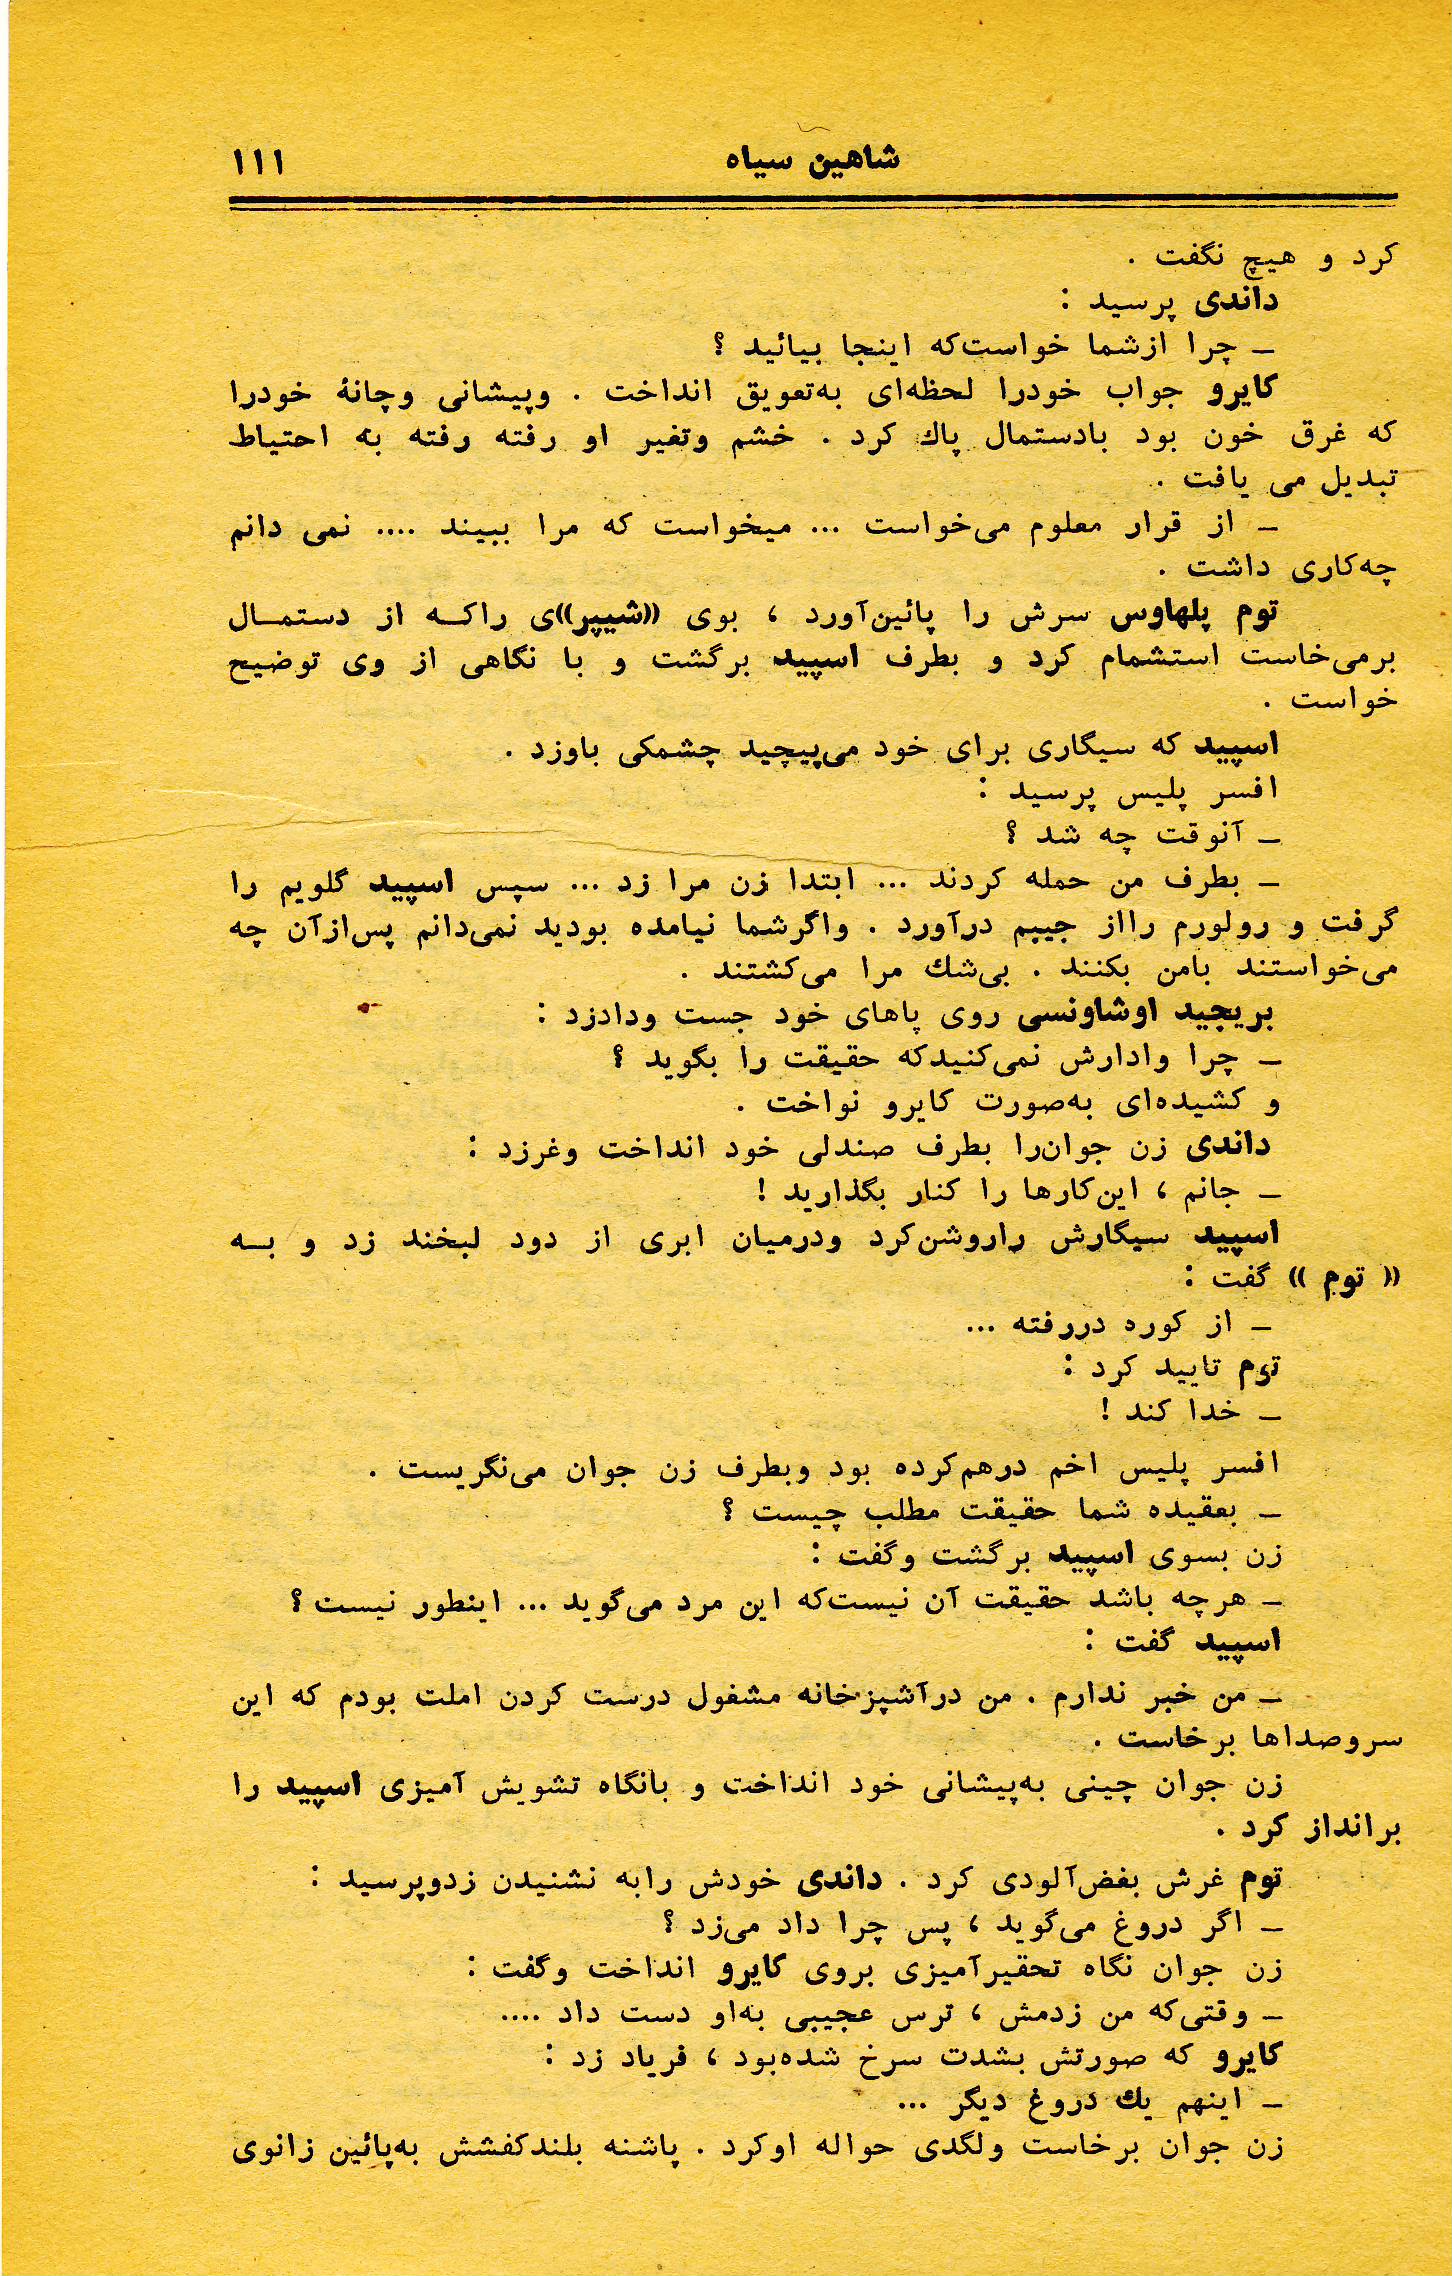 شاهین سیاه ۱۱۱
کرد و هیچ نگفت .
داندی پرسید :
ـ چرا ازشما خواست‌که اینجا بیائید ؟
کایرو جواب خودرا لحظه‌ای به‌تعویق انداخت . وپیشانی وچانهٔ خودرا
که غرق خون بود بادستمال پاك کرد . خشم وتغیر او رفته رفته به احتیاط
تبدیل می یافت .
ـ از قرار معلوم می‌خواست ... میخواست که مرا ببیند .... نمی دانم
چه‌کاری داشت .
توم پلهاوس سرش را پائین‌آورد ، بوی ((شیپر))ی راکـه از دستمـال
برمی‌خاست استشمام کرد و بطرف اسپید برگشت و با نگاهی از وی توضیح
خواست .
اسپید که سیگاری برای خود می‌پیچید چشمکی باوزد .
افسر پلیس پرسید :
ـ آنوقت چه شد ؟
ـ بطرف من حمله کردند ... ابتدا زن مرا زد ... سپس اسپید گلویم را
گرفت و رولورم رااز جیبم درآورد . واگرشما نیامده بودید نمی‌دانم پس‌ازآن چه
می‌خواستند بامن بکنند . بی‌شك مرا می‌کشتند .
بریجید اوشاونسی روی پاهای خود جست ودادزد :
ـ چرا وادارش نمی‌کنیدکه حقیقت را بگوید ؟
و کشیده‌ای به‌صورت کایرو نواخت .
داندی زن جوان‌را بطرف صندلی خود انداخت وغرزد :
ـ جانم ، این‌کارها را کنار بگذارید !
اسپید سیگارش راروشن‌کرد ودرمیان ابری از دود لبخند زد و بـه
(( توم )) گفت :
ـ از کوره دررفته ...
توم تایید کرد :
ـ خدا کند !
افسر پلیس اخم درهم‌کرده بود وبطرف زن جوان می‌نگریست .
ـ بعقیده شما حقیقت مطلب چیست ؟
زن بسوی اسپید برگشت وگفت :
ـ هرچه باشد حقیقت آن نیست‌که این مرد می‌گوید ... اینطور نیست ؟
اسپید گفت :
ـ من خبر ندارم . من درآشپزخانه مشغول درست کردن املت بودم که این
سروصداها برخاست .
زن جوان چینی به‌پیشانی خود انداخت و بانگاه تشویش آمیزی اسپید را
برانداز کرد .
توم غرش بغض‌آلودی کرد . داندی خودش رابه نشنیدن زدوپرسید :
ـ اگر دروغ می‌گوید ، پس چرا داد می‌زد ؟
زن جوان نگاه تحقیرآمیزی بروی کایرو انداخت وگفت :
ـ وقتی‌که من زدمش ، ترس عجیبی به‌او دست داد ....
کایرو که صورتش بشدت سرخ شده‌بود ، فریاد زد :
ـ اینهم یك دروغ دیگر ...
زن جوان برخاست ولگدی حواله اوکرد . پاشنه بلندکفشش به‌پائین زانوی